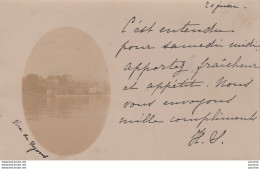 20 juin.
C'est entendu
pour samedi midi
apportez fraicheur
et appétit. Nous
vous envoyons
mille compliments
Vue du